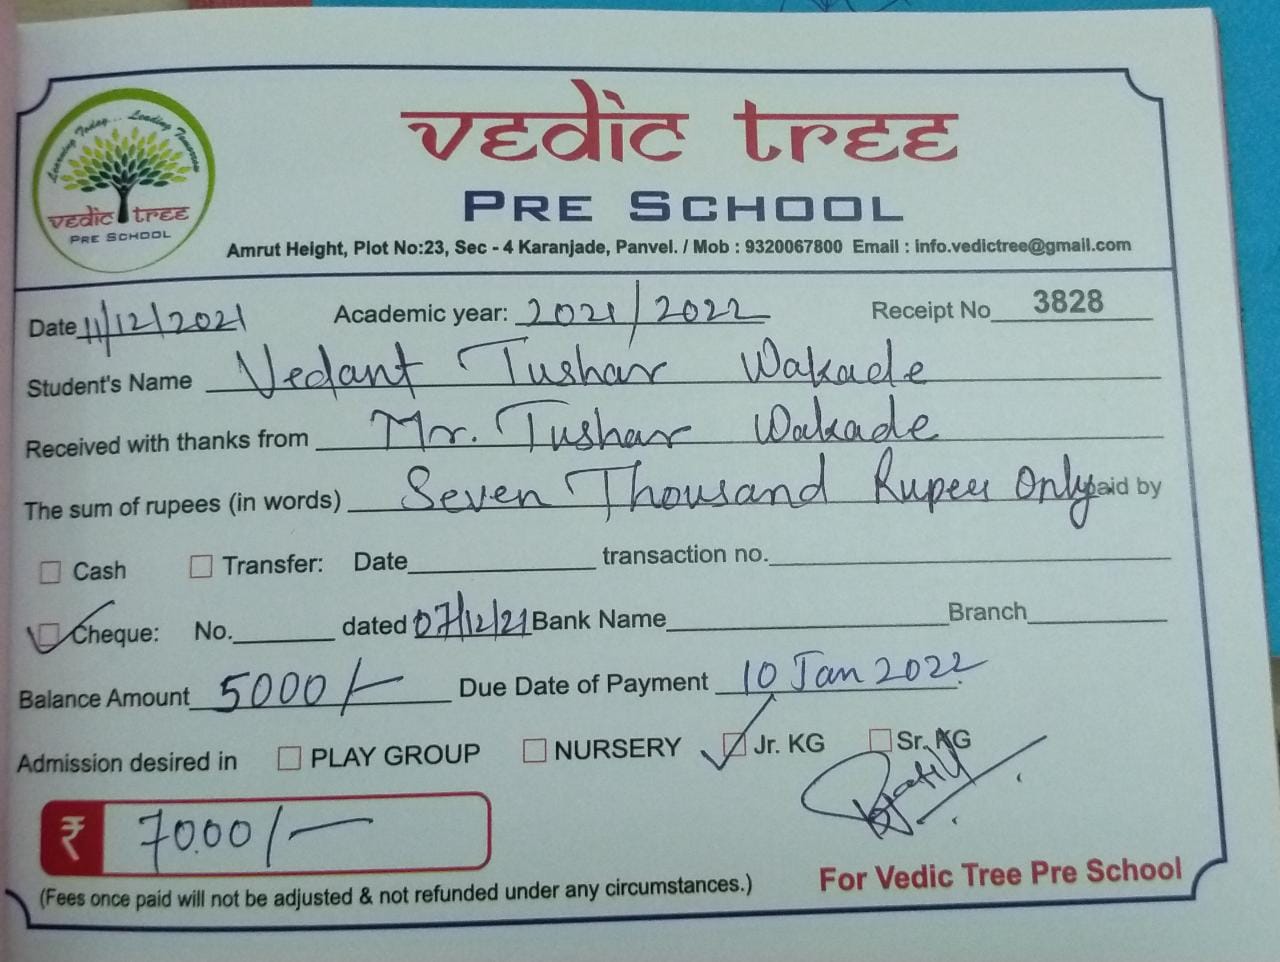 Learning Today... Leading Tomorrow
vedic tree
PRE SCHOOL
vedic tree
PRE SCHOOL
Amrut Height, Plot No:23, Sec - 4 Karanjade, Panvel. / Mob : 9320067800 Email : info.vedictree@gmail.com
Date 11/12/2021 Academic year: 2021/2022 Receipt No 3828
Student's Name Vedant Tushar Wakade
Received with thanks from Mr. Tushar Wakade
The sum of rupees (in words) Seven Thousand Rupees Only paid by
Cash Transfer: Date transaction no.
Cheque: No. dated 07/12/21 Bank Name Branch
Balance Amount 5000/- Due Date of Payment 10 Jan 2022
Admission desired in PLAY GROUP NURSERY Jr. KG Sr. KG
₹ 7000/-
(Fees once paid will not be adjusted & not refunded under any circumstances.) For Vedic Tree Pre School